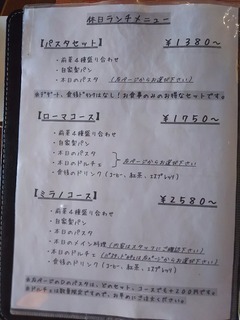 休日ランチメニュー
【パスタセット】 ￥1380～
・前菜4種盛り合わせ
・自家製パン
・本日のパスタ (右ページからお選び下さい)
※デザート、食後ドリンクはなし！お食事のみのお得なセットです。
【ローマコース】 ￥1750～
・前菜4種盛り合わせ
・自家製パン
・本日のパスタ
・本日のドルチェ 右ページからお選び下さい
・食後のドリンク (コーヒー、紅茶、エスプレッソ)
【ミラノコース】 ￥2580～
・前菜4種盛り合わせ
・自家製パン
・本日のパスタ
・本日のメイン料理 (内容はスタッフにご確認下さい)
・本日のドルチェ (パスタ、ドルチェは右ページからお選び下さい)
・食後のドリンク (コーヒー、紅茶、エスプレッソ)